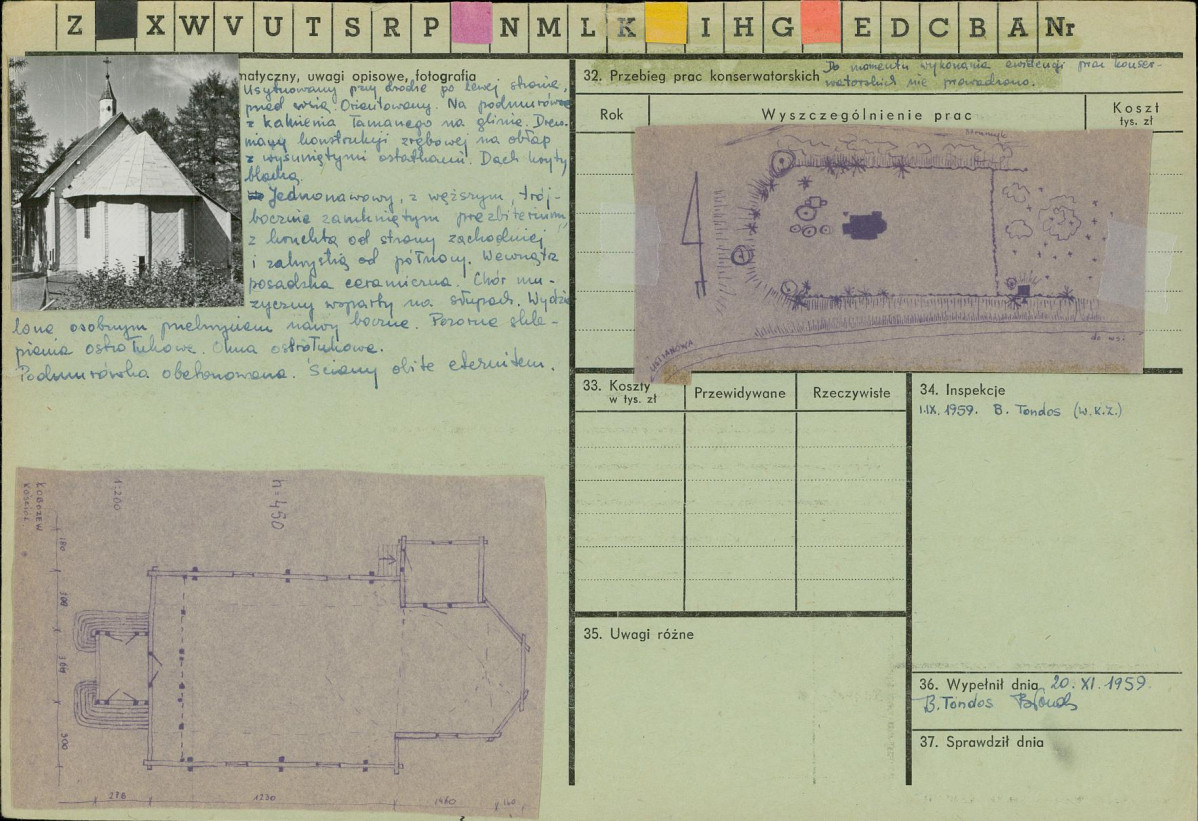 Z X W V U T S R P N M L K I H G E D C B A Nr
matyczny, uwagi opisowe, fotografia
Usytuowany przy drodze po lewej stronie,
przed wsią. Orientowany. Na podmurówce
z kamienia łamanego na glinie. Drew-
niany konstrukcji zrębowej na obłap
z wysuniętymi ostatkami. Dach kryty
blachą.
Jednonawowy, z węższym, trój-
bocznie zamkniętym prezbiterium
z kruchtą od strony zachodniej
i zakrystią od północy. Wewnątrz
posadzka ceramiczna. Chór mu-
zyczny wsparty na słupach. Wydzie
lone osobnym przekryciem nawy boczne. Pozorne skle-
pienia ostrołukowe. Okna ostrołukowe.
Podmurówka obetonowana. Ściany obite eternitem.
ŁOBOZEW
KOŚCIÓŁ
1:200
h=450
180
300
364
300
276
1230
32. Przebieg prac konserwatorskich
Do momentu wykonania ewidencji prac konser-
watorskich nie prowadzono.
Rok
Wyszczególnienie prac
Koszt
tys. zł
strumyk
USTIANOWA
do wsi
33. Koszty
w tys. zł
Przewidywane
Rzeczywiste
34. Inspekcje
1.IX. 1959. B. Tondos (W.K.Z.)
35. Uwagi różne
36. Wypełnił dnia 20. XI. 1959.
B. Tondos
37. Sprawdził dnia